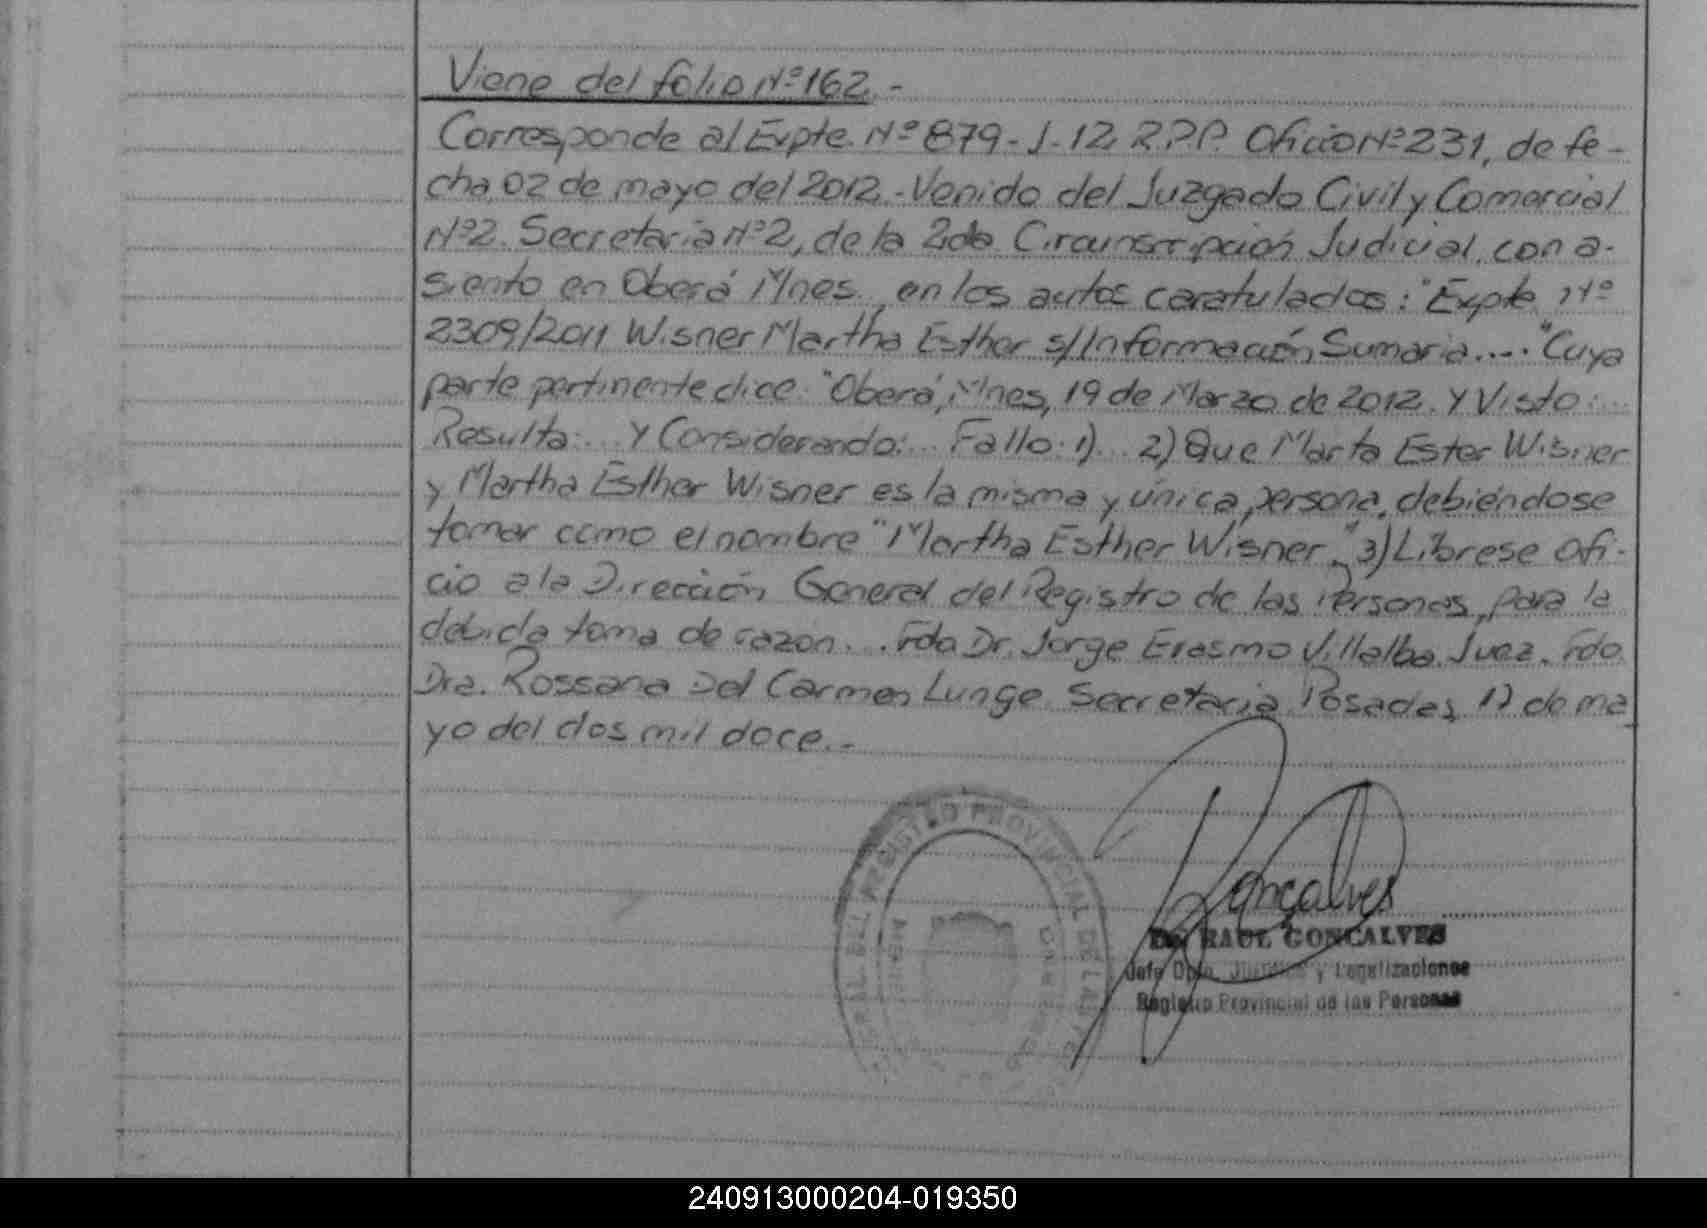 Viene del folio Nº 162.-
Corresponde al Expte. Nº 879-J-12 R.P.P. Oficio Nº 231, de fe-
cha 02 de mayo del 2012.- Venido del Juzgado Civil y Comercial
Nº2. Secretaria Nº2, de la 2da Circunscripción Judicial, con a-
siento en Oberá Mnes, en los autos caratulados: "Expte Nº
2309/2011 Wisner Martha Esther s/Información Sumaria...." Cuya
parte pertinente dice: "Oberá, Mnes, 19 de Marzo de 2012. Y Visto:...
Resulta:... Y Considerando:... Fallo: 1)... 2) Que Marta Ester Wisner
y Martha Esther Wisner es la misma y única persona, debiéndose
tomar como el nombre "Martha Esther Wisner." 3) Líbrese ofi-
cio a la Dirección General del Registro de las Personas, para la
debida toma de razon... Fdo Dr. Jorge Erasmo Villalba. Juez. Fdo
Dra. Rossana Del Carmen Lunge Secretaria. Posadas, 17 de ma
yo del dos mil doce.-
REGISTRO PROVINCIAL DE LAS
Gonçalves
Dr. RAUL GONCALVES
Jefe Dpto. Jurídico y Legalizaciones
Registro Provincial de las Personas
240913000204-019350